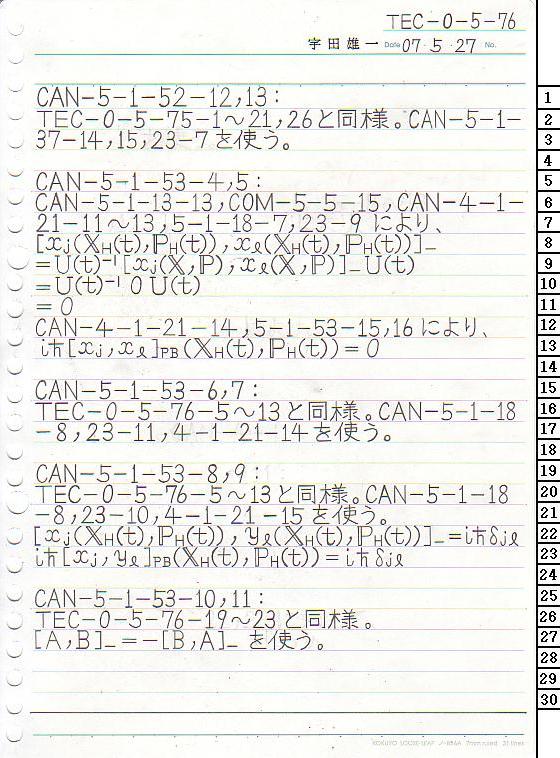 TEC-0-5-76
宇田雄一 Date 07・5・27 No.
CAN-5-1-52-12,13:
TEC-0-5-75-1〜21,26と同様。CAN-5-1-
37-14,15,23-7を使う。
CAN-5-1-53-4,5:
CAN-5-1-13-13,COM-5-5-15,CAN-4-1-
21-11〜13,5-1-18-7,23-9により、
[xj(XH(t),PH(t)),xℓ(XH(t),PH(t))]−
=U(t)⁻¹[xj(X,P),xℓ(X,P)]−U(t)
=U(t)⁻¹0U(t)
=0
CAN-4-1-21-14,5-1-53-15,16により、
iħ[xj,xℓ]PB(XH(t),PH(t))=0
CAN-5-1-53-6,7:
TEC-0-5-76-5〜13と同様。CAN-5-1-18
-8,23-11,4-1-21-14を使う。
CAN-5-1-53-8,9:
TEC-0-5-76-5〜13と同様。CAN-5-1-18
-8,23-10,4-1-21-15を使う。
[xj(XH(t),PH(t)),yℓ(XH(t),PH(t))]−=iħδjℓ
iħ[xj,yℓ]PB(XH(t),PH(t))=iħδjℓ
CAN-5-1-53-10,11:
TEC-0-5-76-19〜23と同様。
[A,B]−=−[B,A]−を使う。
KOKUYO LOOSE-LEAF ノ-836A 7mm ruled 31 lines
1
2
3
4
5
6
7
8
9
10
11
12
13
14
15
16
17
18
19
20
21
22
23
24
25
26
27
28
29
30